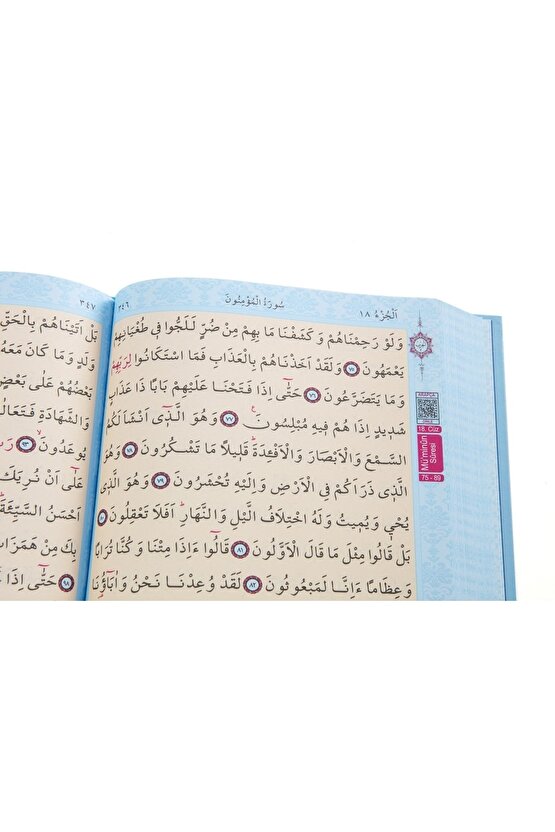 اَلْجُزْءُ ١٨ سُورَةُ الْمُؤْمِنُونَ ٣٤٦
وَلَوْ رَحِمْنَاهُمْ وَكَشَفْنَا مَا بِهِمْ مِنْ ضُرٍّ لَلَجُّوا فٖى طُغْيَانِهِمْ
يَعْمَهُونَ ٧٥ وَلَقَدْ اَخَذْنَاهُمْ بِالْعَذَابِ فَمَا اسْتَكَانُوا لِرَبِّهِمْ
وَمَا يَتَضَرَّعُونَ ٧٦ حَتّٰى اِذَا فَتَحْنَا عَلَيْهِمْ بَابًا ذَا عَذَابٍ
شَدٖيدٍ اِذَا هُمْ فٖيهِ مُبْلِسُونَ ٧٧ وَهُوَ الَّذٖى اَنْشَاَ لَكُمُ
السَّمْعَ وَالْاَبْصَارَ وَالْاَفْئِدَةَ قَلٖيلًا مَا تَشْكُرُونَ ٧٨ وَهُوَ
الَّذٖى ذَرَاَكُمْ فِى الْاَرْضِ وَاِلَيْهِ تُحْشَرُونَ ٧٩ وَهُوَ الَّذٖى
يُحْيٖى وَيُمٖيتُ وَلَهُ اخْتِلَافُ الَّيْلِ وَالنَّهَارِ اَفَلَا تَعْقِلُونَ ٨٠
بَلْ قَالُوا مِثْلَ مَا قَالَ الْاَوَّلُونَ ٨١ قَالُوا ءَاِذَا مِتْنَا وَكُنَّا تُرَابًا
وَعِظَامًا ءَاِنَّا لَمَبْعُوثُونَ ٨٢ لَقَدْ وُعِدْنَا نَحْنُ وَاٰبَاؤُنَا
ARAPÇA
18. Cüz
Mü'minûn
Sûresi
75 - 89
٣٤٧
بَلْ اَتَيْنَاهُمْ بِالْحَقِّ
وَلَدٍ وَمَا كَانَ مَعَهُ
بَعْضُهُمْ عَلٰى بَعْضٍ
وَالشَّهَادَةِ فَتَعَالٰى
يُوعَدُونَ ٩٣ رَبِّ
عَلٰى اَنْ نُرِيَكَ
اَحْسَنُ السَّيِّئَةَ
بِكَ مِنْ هَمَزَاتِ
٩٨ حَتّٰى اِذَا